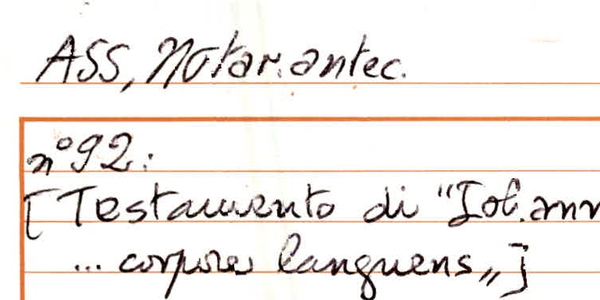 ASS, Notar. antec.
n° 92:
[Testamento di "Ioh. ann
... corpore languens„]